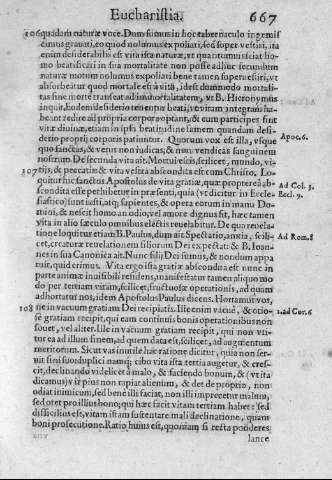 Eucharistia. 667
106 quadam naturæ voce. Dum sumus in hoc tabernaculo ingemis
cimus grauati, eo quod nolumus expoliari, sed super vestiri, ita
enim desiderabilis est vita ista naturæ, vt quantumuis sciat ho-
mo beatificari in sua mortalitate non posse adhuc secundum
naturæ motum nolumus expoliari bene tamen superuestiri, vt
absorbeatur quod mortale est à vita, idest dommodo mortali-
tas sine morte transeat ad immortalitatem, vt B. Hieronymus
inquit, hoc
desiderio tenentur beati, vt vitam integram ha-
beant redire ad propria corpora optant, & cum participes sint
vitæ diuinæ, etiam in ipsa beatitudine famem quandam desi-
derio proprij corporis patiuntur. Quorum vox est illa, vsque Apoc. 6.
quo sanctus, & verus non iudicas, & non vendicas sanguinem
nostrum. De secunda vita ait. Mortui estis, scilicet, mundo, vi-
107 tijs, & peccatis & vita vestra abscondita est cum Christo. Lo
quitur hic sanctus Apostolus de vita gratiæ, quæ propterea ab- Ad Col. 3.
scondita esse perhibetur in præsenti, quia (vt dicitur in Eccle- Eccl. 9.
siastico) sunt iusti, atq; sapientes, & opera eorum in manu Do-
mini, & nescit homo an odio, vel amore dignus sit, hæc tamen
vita in alio sæculo omnibus electis reuelabitur. De qua reuela
tione loquitur etiam B. Paulus, dum ait Spectatio, anxia, scili- Ad Rom. 8
cet, creaturæ reuelationem filiorum Dei expectat: & B. Ioan-
nes in sua Canonica ait. Nunc filij Dei sumus, & nondum appa
ruit, quid erimus. Vita ergo ista gratiæ abscondita est nunc in
parte animæ inuisibili residens, manifestatur tamen aliquo mo
do per tertiam vitam, scilicet, fructuosæ operationis, ad quam
adhortatur nos, idem Apostolus Paulus dicens. Hortamur vos,
108 ne in vacuum gratiam Dei recipiatis. Ille enim vacuè, & otio- 2. ad Cor. 6
sè gratiam recipit, qui eam continuis bonis operationibus non
fouet, vel aliter. Ille in vacuum gratiam recipit, qui non vti-
tur ea ad illum finem, ad quem data est, scilicet, ad augmentum
meritorum. Sicut vas inutile hac ratione dicitur, quia non ser-
uit sini suo
duplici namq; cibo vita ista tertia augetur, & cres-
cit, declinando videlicet à malo, & faciendo bonum, & (vt ita
dicamus) vir pius non rapiat alienum, & det de proprio, non
odiat inimicum, sed benè illi faciat, non illi imprecetur malum,
sed oret pro illius bono; qui hæc facit vitam tertiam habet: sed
difficilius est, vitam istam sustentare mali declinatione, quam
boni prosecutione. Ratio huius est, quoniam si recta ponderes
lance